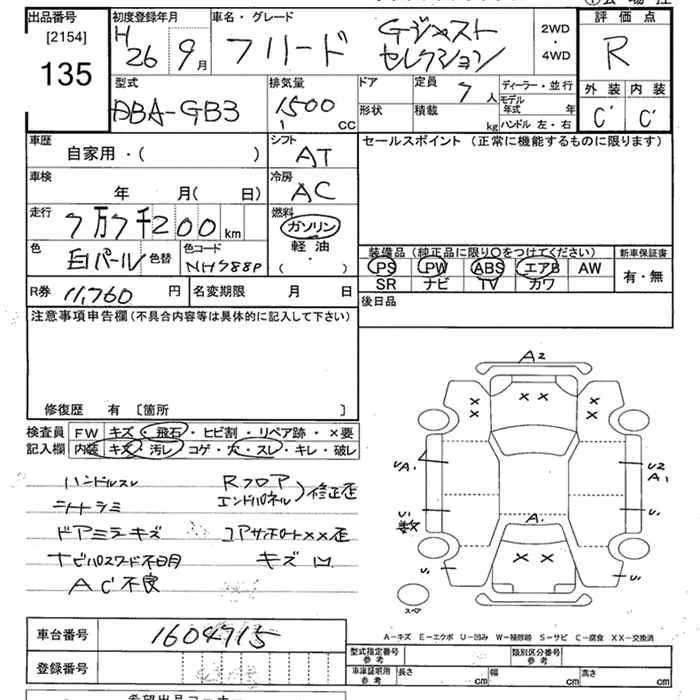 出品番号 初度登録年月 車名・グレード 2WD・4WD 評価点
[2154] H26 9月 フリード Gジャスト セレクション R
135
型式 排気量 ドア 定員 7人 ディーラー・並行 外装 内装
DBA-GB3 1500 CC 形状 積載 kg モデル年式 年 ハンドル 左・右 C' C'
車歴 シフト セールスポイント (正常に機能するものに限ります)
自家用・( ) AT
車検 冷房
年 月( 日) AC
走行 燃料
7万7千200km ガソリン
色 白パール 色替 色コード NH788P 軽油・( )
装備品 (純正品に限り○をつけてください) 新車保証書
PS PW ABS エアB AW 有・無
SR ナビ TV カワ
R券 11,760円 名変期限 月 日 後日品
注意事項申告欄 (不具合内容等は具体的に記入して下さい)
修復歴 有 [箇所 ]
検査員 FW キズ・飛石・ヒビ割・リペア跡・×要
記入欄 内装 キズ・汚レ・コゲ・穴・スレ・キレ・破レ
ハンドルスレ Rフロア
シートシミ エンドパネル)修正歪
ドアミラーキズ コアサポート××歪
ナビパスワード不明 キズ凹
AC不良
A2
××
×× ××
UA1 U2
A1
U1 A1 U1
数
××
U1 U1
スペア
A-キズ E-エクボ U-凹み W-補修跡 S-サビ C-腐食 XX-交換済
車台番号 1604715
登録番号
型式指定番号 参考 類別区分番号 参考
車庫証明用 参考 長さ cm 幅 cm 高さ cm
希望出品コーナー